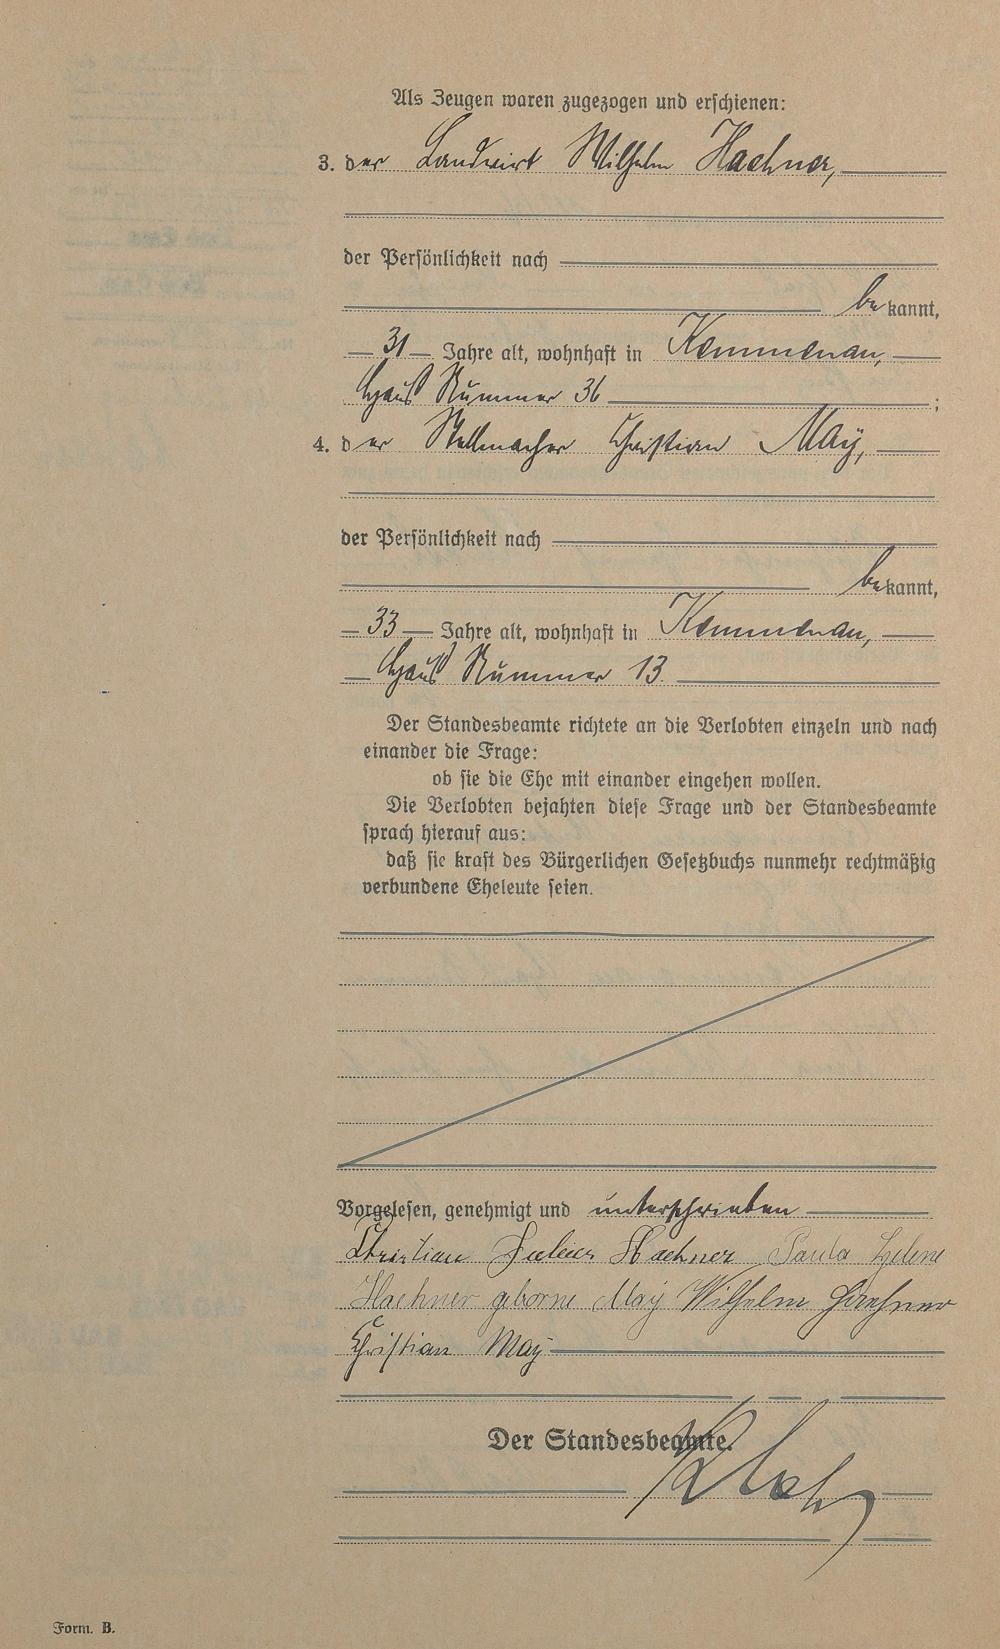 Als Zeugen waren zugezogen und erschienen:
3. der Landwirt Wilhelm Haehner,
der Persönlichkeit nach
bekannt,
31 Jahre alt, wohnhaft in Kommenau,
Haus Nummer 36 ;
4. der Stellmacher Christian May,
der Persönlichkeit nach
bekannt,
33 Jahre alt, wohnhaft in Kommenau,
Haus Nummer 13.
Der Standesbeamte richtete an die Verlobten einzeln und nach
einander die Frage:
ob sie die Ehe mit einander eingehen wollen.
Die Verlobten bejahten diese Frage und der Standesbeamte
sprach hierauf aus:
daß sie kraft des Bürgerlichen Gesetzbuchs nunmehr rechtmäßig
verbundene Eheleute seien.
Vorgelesen, genehmigt und unterschrieben
Christian Julius Haehner Paula Helene
Haehner geborne May Wilhelm Haehner
Christian May
Der Standesbeamte.
Form. B.